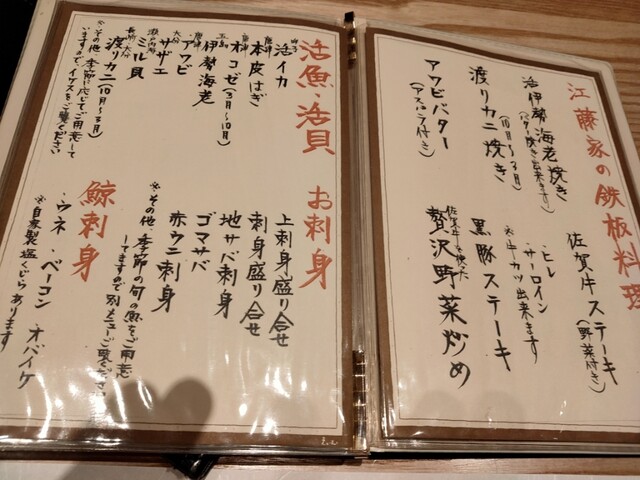 江藤家の鉄板料理
活伊勢海老焼き
(バター焼き出来ます)
渡りカニ焼き
(10月〜3月)
アワビバター
(アスパラ付き)
佐賀牛ステーキ
(野菜付き)
・ヒレ
・サーロイン
黒豚ステーキ
佐賀牛を使った
贅沢野菜炒め
活魚・活貝
活イカ
唐津
本皮はぎ
オコゼ(3月〜10月)
伊勢海老
大分
アワビ
サザエ
瀬戸内海
ミル貝
長崎・大分
渡りカニ(10月〜3月)
※その他季節に応じてご用意して
いますので、イケスをご覧ください
お刺身
上刺身盛り合せ
刺身盛り合せ
地サバ刺身
ゴマサバ
赤ウニ刺身
※その他季節の旬の魚をご用意
してますので別メニューご覧ください
鯨刺身
・ウネ・ベーコン・オバイケ
※自家製塩くじらあります